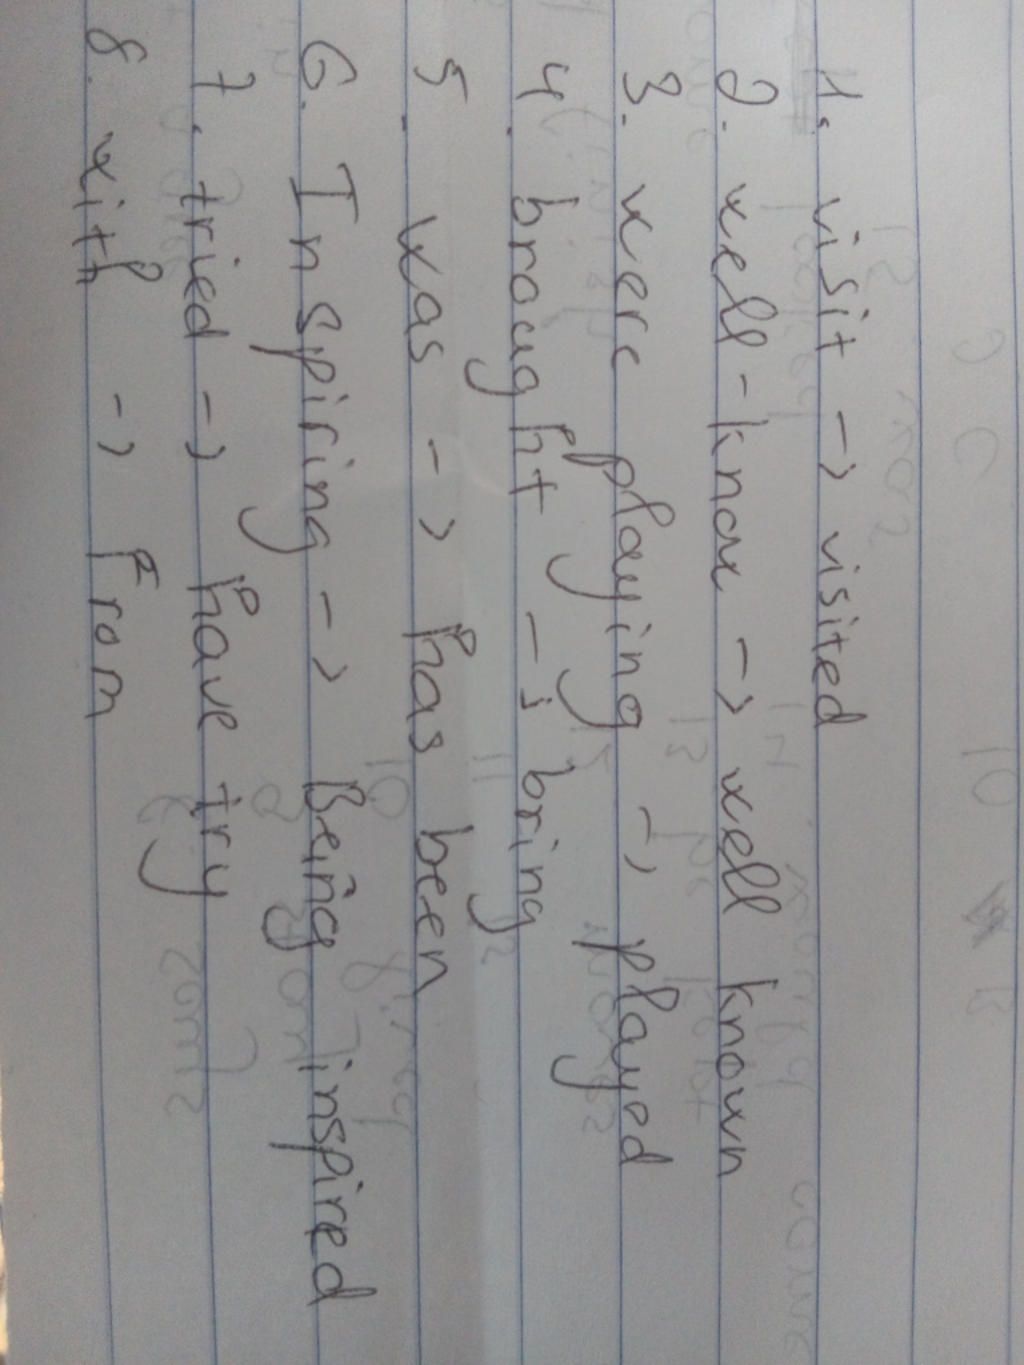 1. visit -> visited
2. well-know -> well known
3. were playing -> played
4. brought -> bring
5. was -> has been
6. Inspiring -> Being inspired
7. tried -> have try
8. with -> From